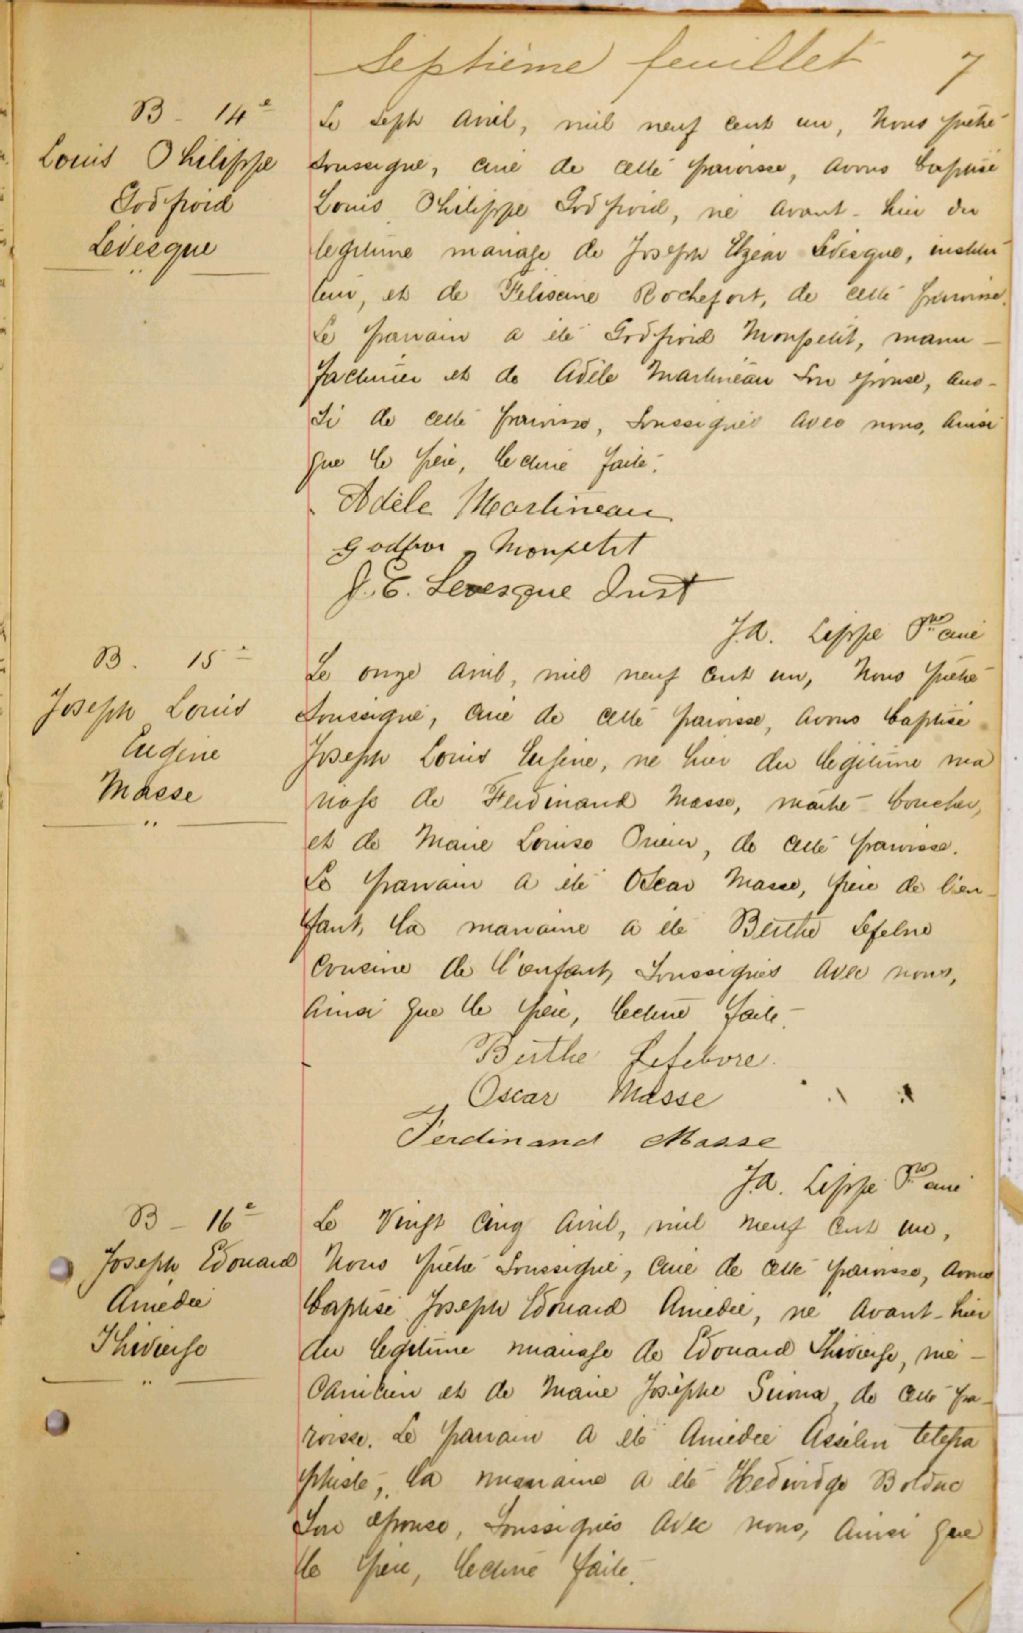 Septième feuillet 7
B - 14e
Louis Philippe
Godfroid
Lévesque
Le sept avril, mil neuf cent un, Nous prêtre
soussigné, curé de cette paroisse, avons baptisé
Louis Philippe Godfroid, né avant-hier du
légitime mariage de Joseph Elzéar Lévesque, institu
teur, et de Felixine Rochefort, de cette paroisse.
Le parrain a été Godfroid Monpetit, manu-
facturier et de Adèle Martineau son épouse, aus-
si de cette paroisse, soussignés avec nous, ainsi
que le père, lecture faite.
Adèle Martineau
Godfroi Monpetit
J. E. Levesque Inst
J.A. Lippé Ptre curé
B. 15e
Joseph Louis
Eugène
Masse
Le onze avril, mil neuf cent un, Nous prêtre
soussigné, curé de cette paroisse, avons baptisé
Joseph Louis Eugène, né hier du légitime ma
riage de Ferdinand Masse, maître-boucher,
et de Marie Louise Prieur, de cette paroisse.
Le parrain a été Oscar Masse, frère de l'en-
fant, la marraine a été Berthe Lefebre
cousine de l'enfant, soussignés avec nous,
ainsi que le père, lecture faite.
Berthe Lefebvre.
Oscar Masse
Ferdinand Masse
J.A. Lippé Ptre curé
B - 16e
Joseph Edouard
Amédée
Thivierge
Le vingt cinq avril, mil neuf cent un,
Nous prêtre soussigné, curé de cette paroisse, avons
baptisé Joseph Edouard Amédée, né avant-hier
du légitime mariage de Edouard Thivierge, mé-
canicien et de Marie Josèphe Sirois, de cette pa-
roisse. Le parrain a été Amédée Asselin telegra
phiste, la marraine a été Hedwidge Bolduc
son épouse, soussignés avec nous, ainsi que
le père, lecture faite.